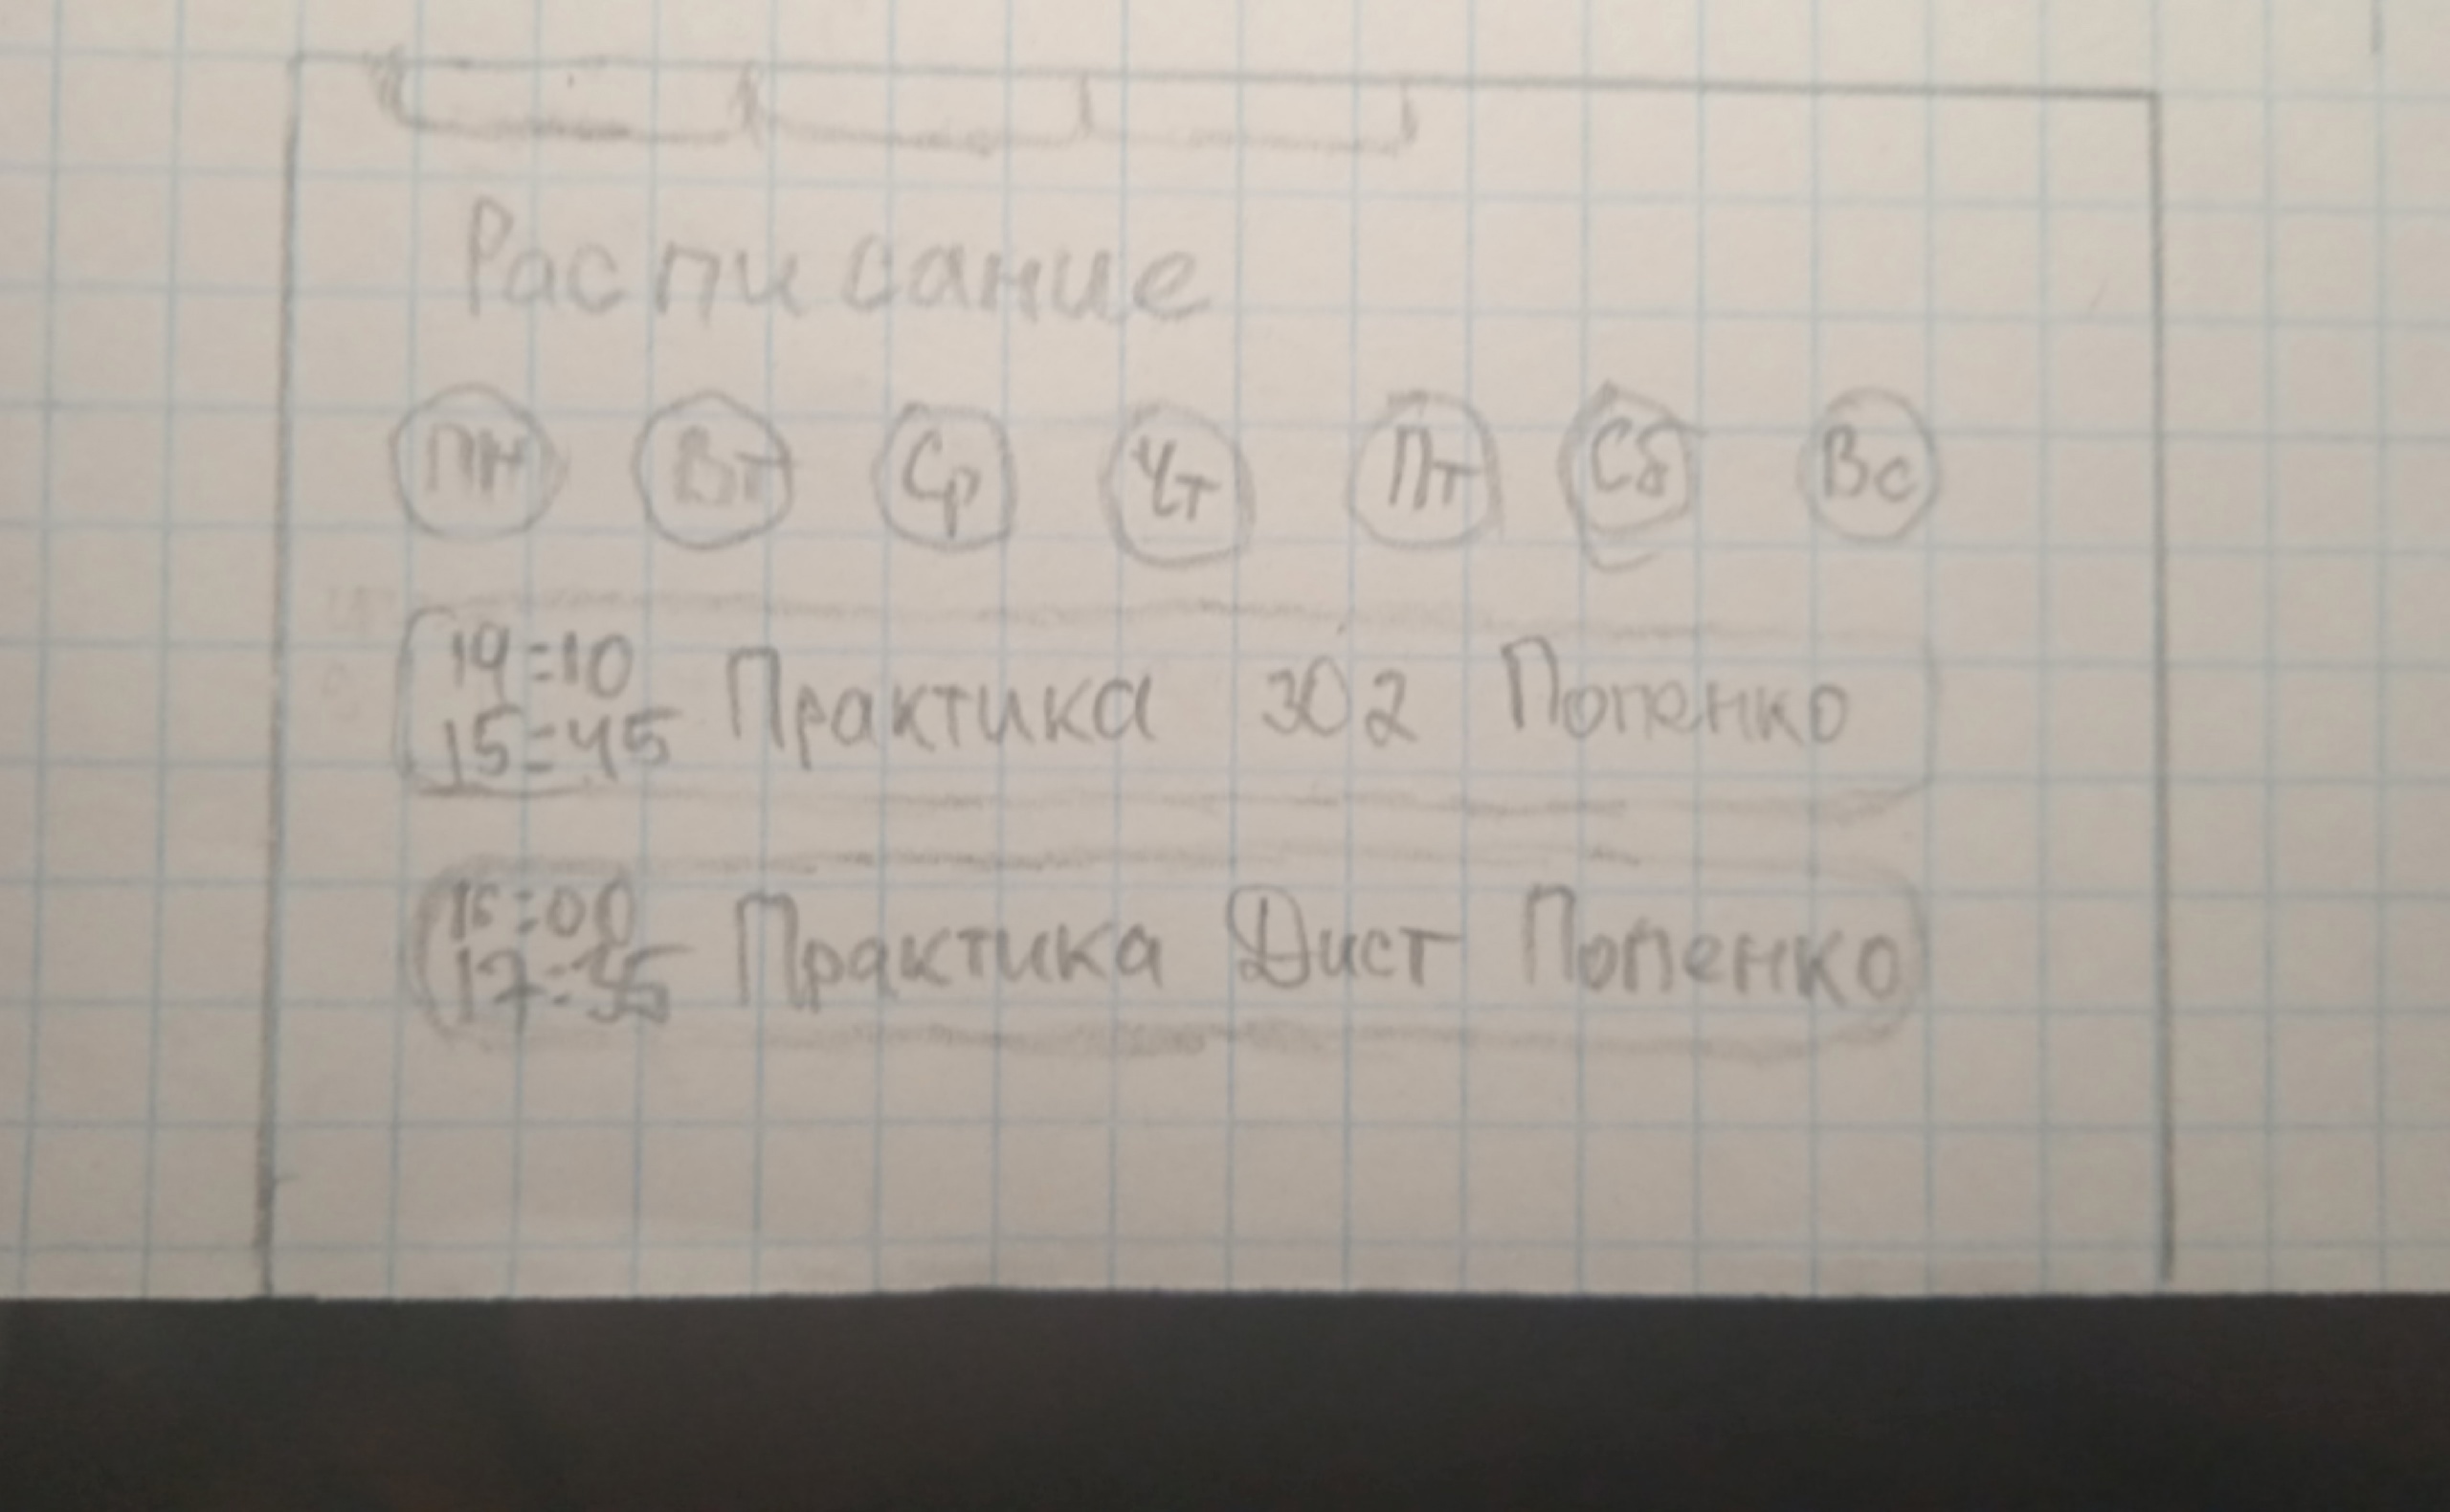 Расписание
Пн Вт Ср Чт Пт Сб Вс
14:10
15:45 Практика 302 Попенко
16:00
17:35 Практика Дист Попенко